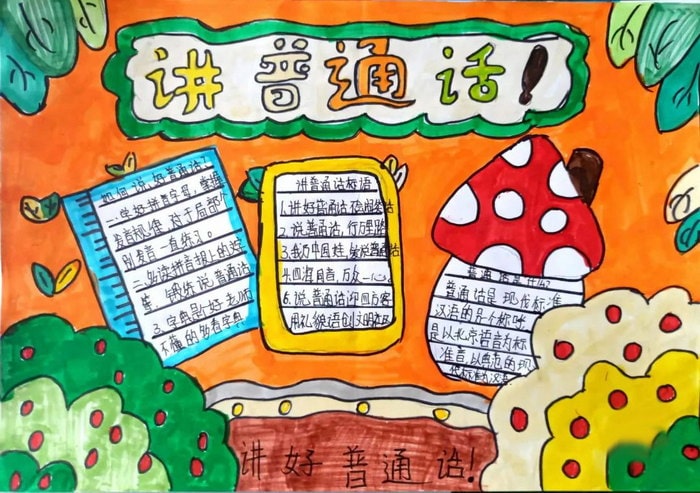 讲普通话!
如何说好普通话?
一.学好拼音字母,掌握
发音规律,对于局部个
别发音一直练习。
二.多读拼音报上的短
笔,锻练说普通话
3.字典是个好老师
不懂的多看字典
讲普通话标语
1.讲好普通话,
2.说普通话,行万里路
3.我为中国娃,爱说普通话
4.四海同音,万众一心。
5.说普通话迎四方客
用礼貌语创文明社区
普通话是什么?
普通话是现代标准
汉语的另个称呼
是以北京语音为标
准音,以典范的现
讲好普通话!